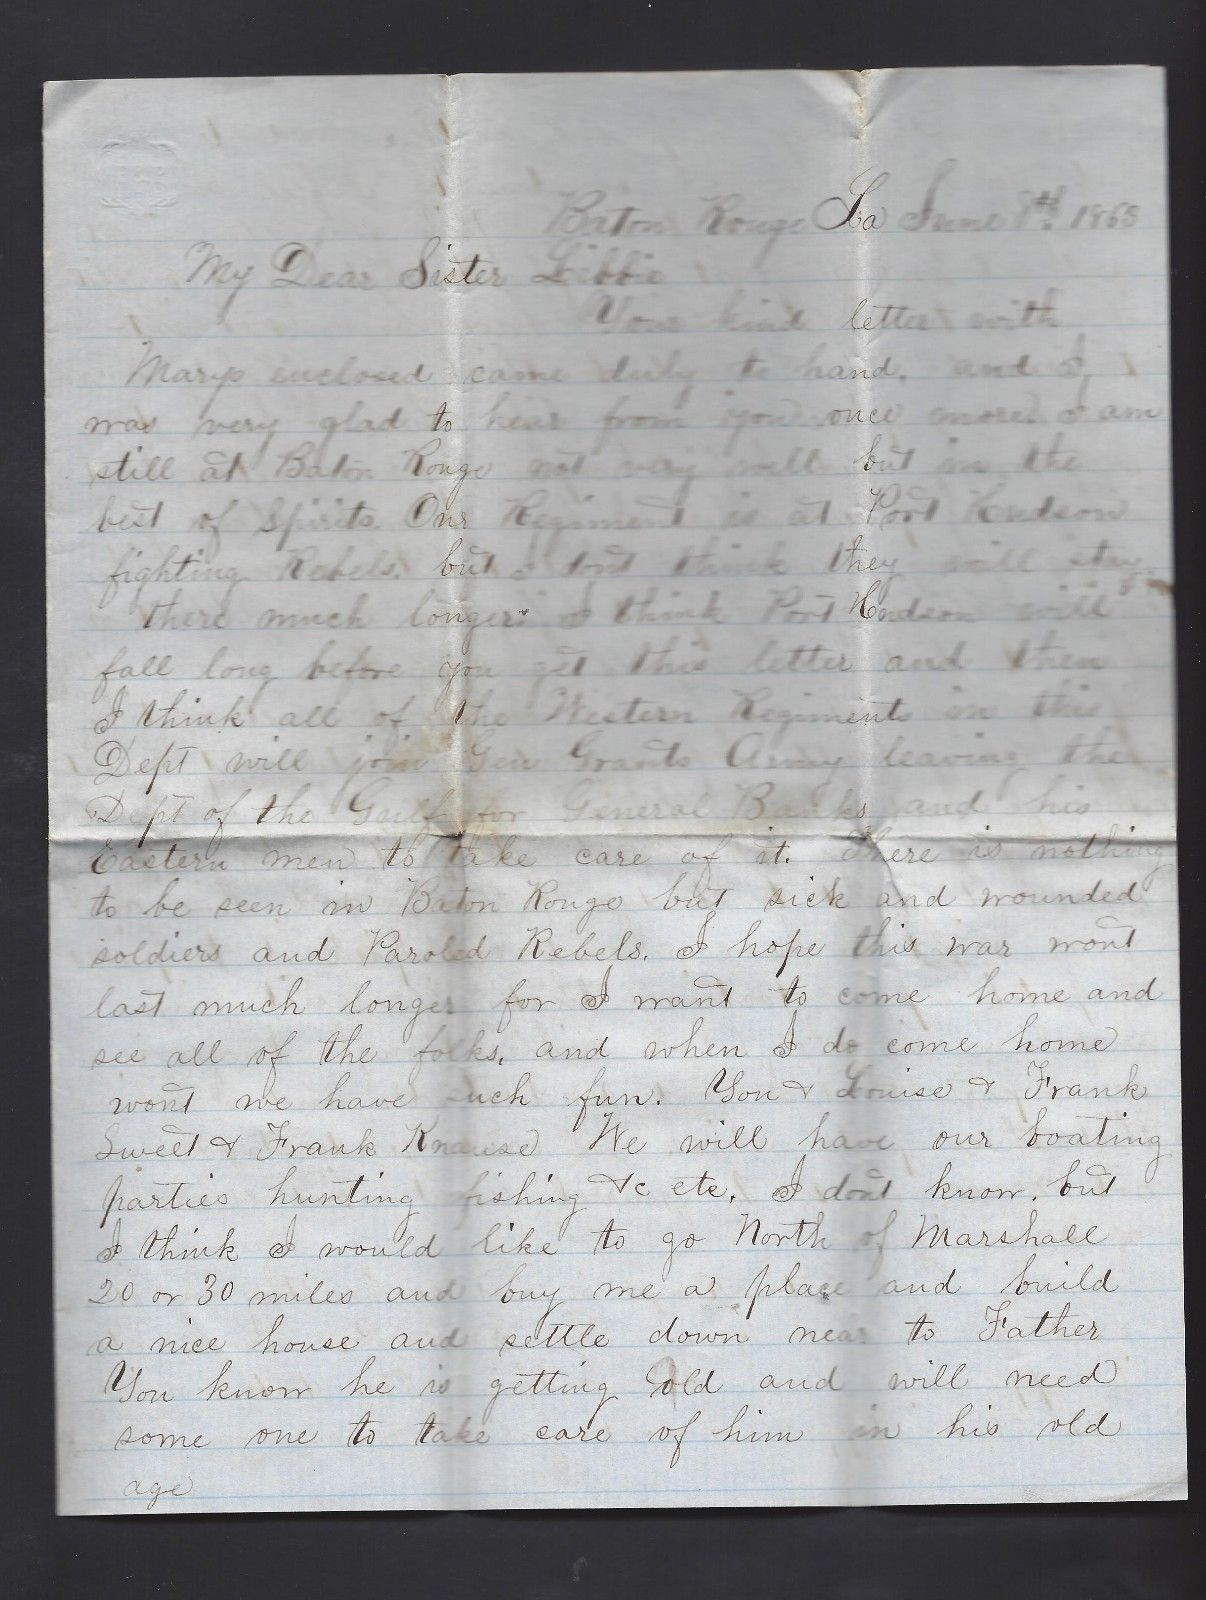 Baton Rouge La June 8th 1863
My Dear Sister Libbie
Your kind letter with
Marys enclosed came duly to hand. and I
was very glad to hear from you once more. I am
still at Baton Rouge not very well but in the
best of Spirits. Our Regiment is at Port Hudson
fighting Rebels. but I dont think they will stay
there much longer. I think Port Hudson will
fall long before you get this letter and then
I think all of the Western Regiments in this
Dept will join Gen Grants Army leaving the
Dept of the Gulf for General Banks and his
Eastern men to take care of it. There is nothing
to be seen in Baton Rouge but sick and wounded
soldiers and Paroled Rebels. I hope this war wont
last much longer for I want to come home and
see all of the folks. and when I do come home
wont we have such fun. You & Louise & Frank
Sweet & Frank Knause We will have our boating
parties hunting fishing &c etc. I dont know. but
I think I would like to go North of Marshall
20 or 30 miles and buy me a place and build
a nice house and settle down near to Father
You know he is getting old and will need
some one to take care of him in his old
age